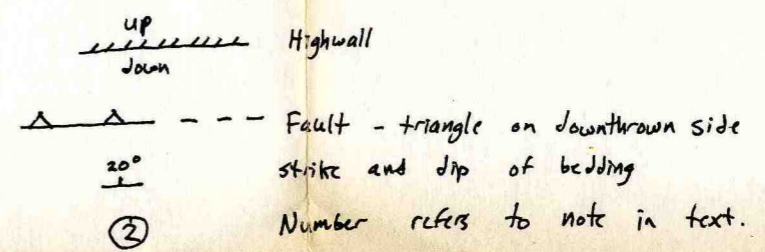 up
Highwall
down
Fault - triangle on downthrown side
20°
strike and dip of bedding
2
Number refers to note in text.